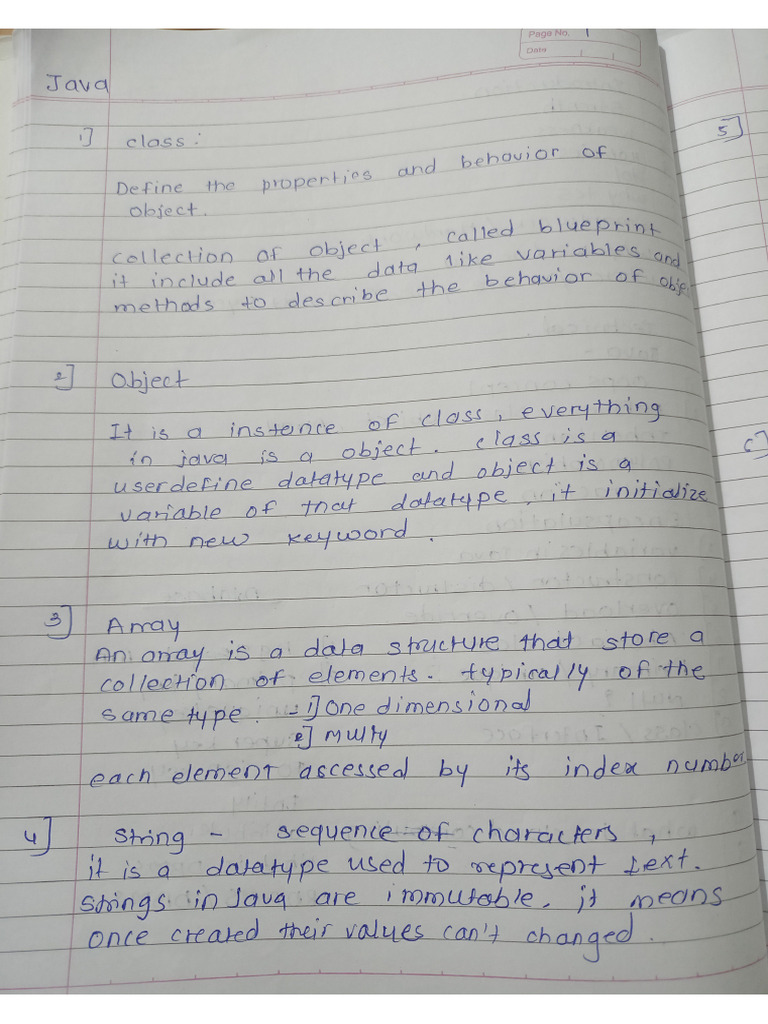 Page No. 1
Date
Java
1] class :
5]
Define the properties and behavior of
object.
collection of object , called blueprint
it include all the data like variables and
methods to describe the behavior of obje
2] Object
It is a instance of class, everything
in java is a object. class is a
6]
userdefine datatype and object is a
variable of that datatype, it initialize
with new keyword.
3] Array
An array is a data structure that store a
collection of elements. typically of the
same type. - 1] One dimensional
2] Multy
each element ascessed by its index number
4] String - sequence of characters ,
it is a datatype used to represent text.
Strings in Java are immutable. it means
once created their values can't changed.